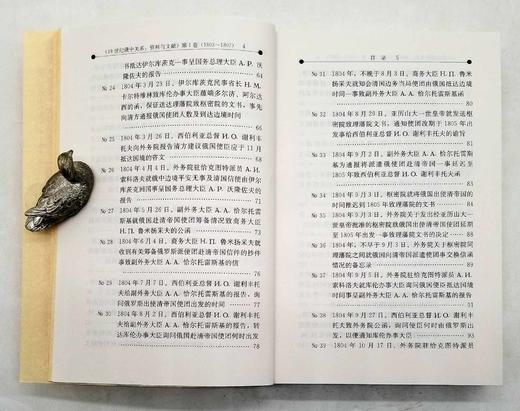 《19世纪俄中关系:资料与文献》第1卷(1803—1807) 4
书抵达伊尔库茨克一事呈国务总理大臣 А.Р. 沃
隆佐夫的报告
64
№ 24 1804年3月23日,伊尔库茨克民事省长 Н.М.
卡尔特维林致库伦办事大臣蕴端多尔济、阿尔达
西的函,保证送达理藩院致枢密院的文书,事先
向清方通报俄国使团人数及到达边境时间
65
№ 25 1804年3月26日,西伯利亚总督 И.О. 谢利丰
托夫向外务院报告清方建议俄国使臣应于11月
抵达国境的咨文
№ 26 1804年4月,外务院驻恰克图特派员 А.И.
索科洛夫就俄中边境平安无事及清国信使由伊
尔库茨克回国事呈国务总理大臣 А.Р. 沃隆佐夫
的报告
№ 27 1804年5月26日,副外务大臣 А.А. 恰尔托雷
斯基就俄国赴清帝国使团筹备情况致商务大臣
Н.П. 鲁米扬采夫的公函
74
№ 28 1804年6月4日,商务大臣 Н.П. 鲁米扬采夫就
收到有关筹备俄罗斯使团赴清帝国信件的抄件
事致副外务大臣 А.А. 恰尔托雷斯基的信
76
№ 29 1804年7月7日,西伯利亚总督 И.О. 谢利丰托
夫给副外务大臣 А.А. 恰尔托雷斯基的报告,询
问俄罗斯出使清帝国使团出发的时间
77
№ 30 1804年8月2日,西伯利亚总督 И.О. 谢利丰托
夫给副外务大臣 А.А. 恰尔托雷斯基的报告,转
达库伦办事大臣询问俄国赴清帝国使团何时出发
78
目录 5
№ 31 1804年,不晚于8月3日,商务大臣 Н.П. 鲁米
扬采夫就知会清国边务当局使团由俄国抵达边境
时间一事致副外务大臣 А.А. 恰尔托雷斯基函
№ 32 1804年8月29日,亚历山大一世皇帝就发送枢
密院致理藩院文书、通知使团改期于1805年出
发事给西伯利亚总督 И.О. 谢利丰托夫的谕旨
№ 33 1804年9月2日,副外务大臣 А.А. 恰尔托雷斯
基为通报将派遣俄使团赴清帝国一事延迟至
1805年致西伯利亚总督 И.О. 谢利丰托夫函
№ 34 1804年9月2日,枢密院就将俄国出使清帝国的
时间推迟到1805年致理藩院的文书
№ 35 1804年9月3日,外务院关于发出经亚历山大一
世皇帝批准的枢密院关于俄国出使清帝国使团延期至
1805年出发一事致理藩院的文书的决定
№ 36 1804年,不早于9月3日,外务院关于枢密院同
理藩院之间就俄国向清帝国派遣使团事交换信函
情况的备忘录
№ 37 1804年9月5日,外务院驻恰克图特派员 А.И.
索科洛夫就库伦办事大臣询问俄国使臣抵达边境
时间事呈副外务大臣 А.А. 恰尔托雷斯基的报告
91
№ 38 1804年9月8日,西伯利亚总督 И.О. 谢利丰
托夫致外务院公函,询问使团何时由俄罗斯出
发,以便通知库伦办事大臣
93
№ 39 1804年10月17日,外务院驻恰克图特派员